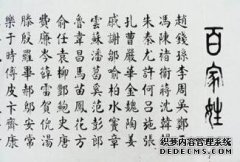 百家姓
趙錢孫李周吳鄭王
馮陳褚衛蔣沈韓楊
朱秦尤許何呂施張
孔曹嚴華金魏陶姜
戚謝鄒喻柏水竇章
雲蘇潘葛奚范彭郎
魯韋昌馬苗鳳花方
俞任袁柳酆鮑史唐
費廉岑薛雷賀倪湯
滕殷羅畢郝鄔安常
樂于時傅皮卞齊康
织梦内容管理系统
DEDECMS.COM